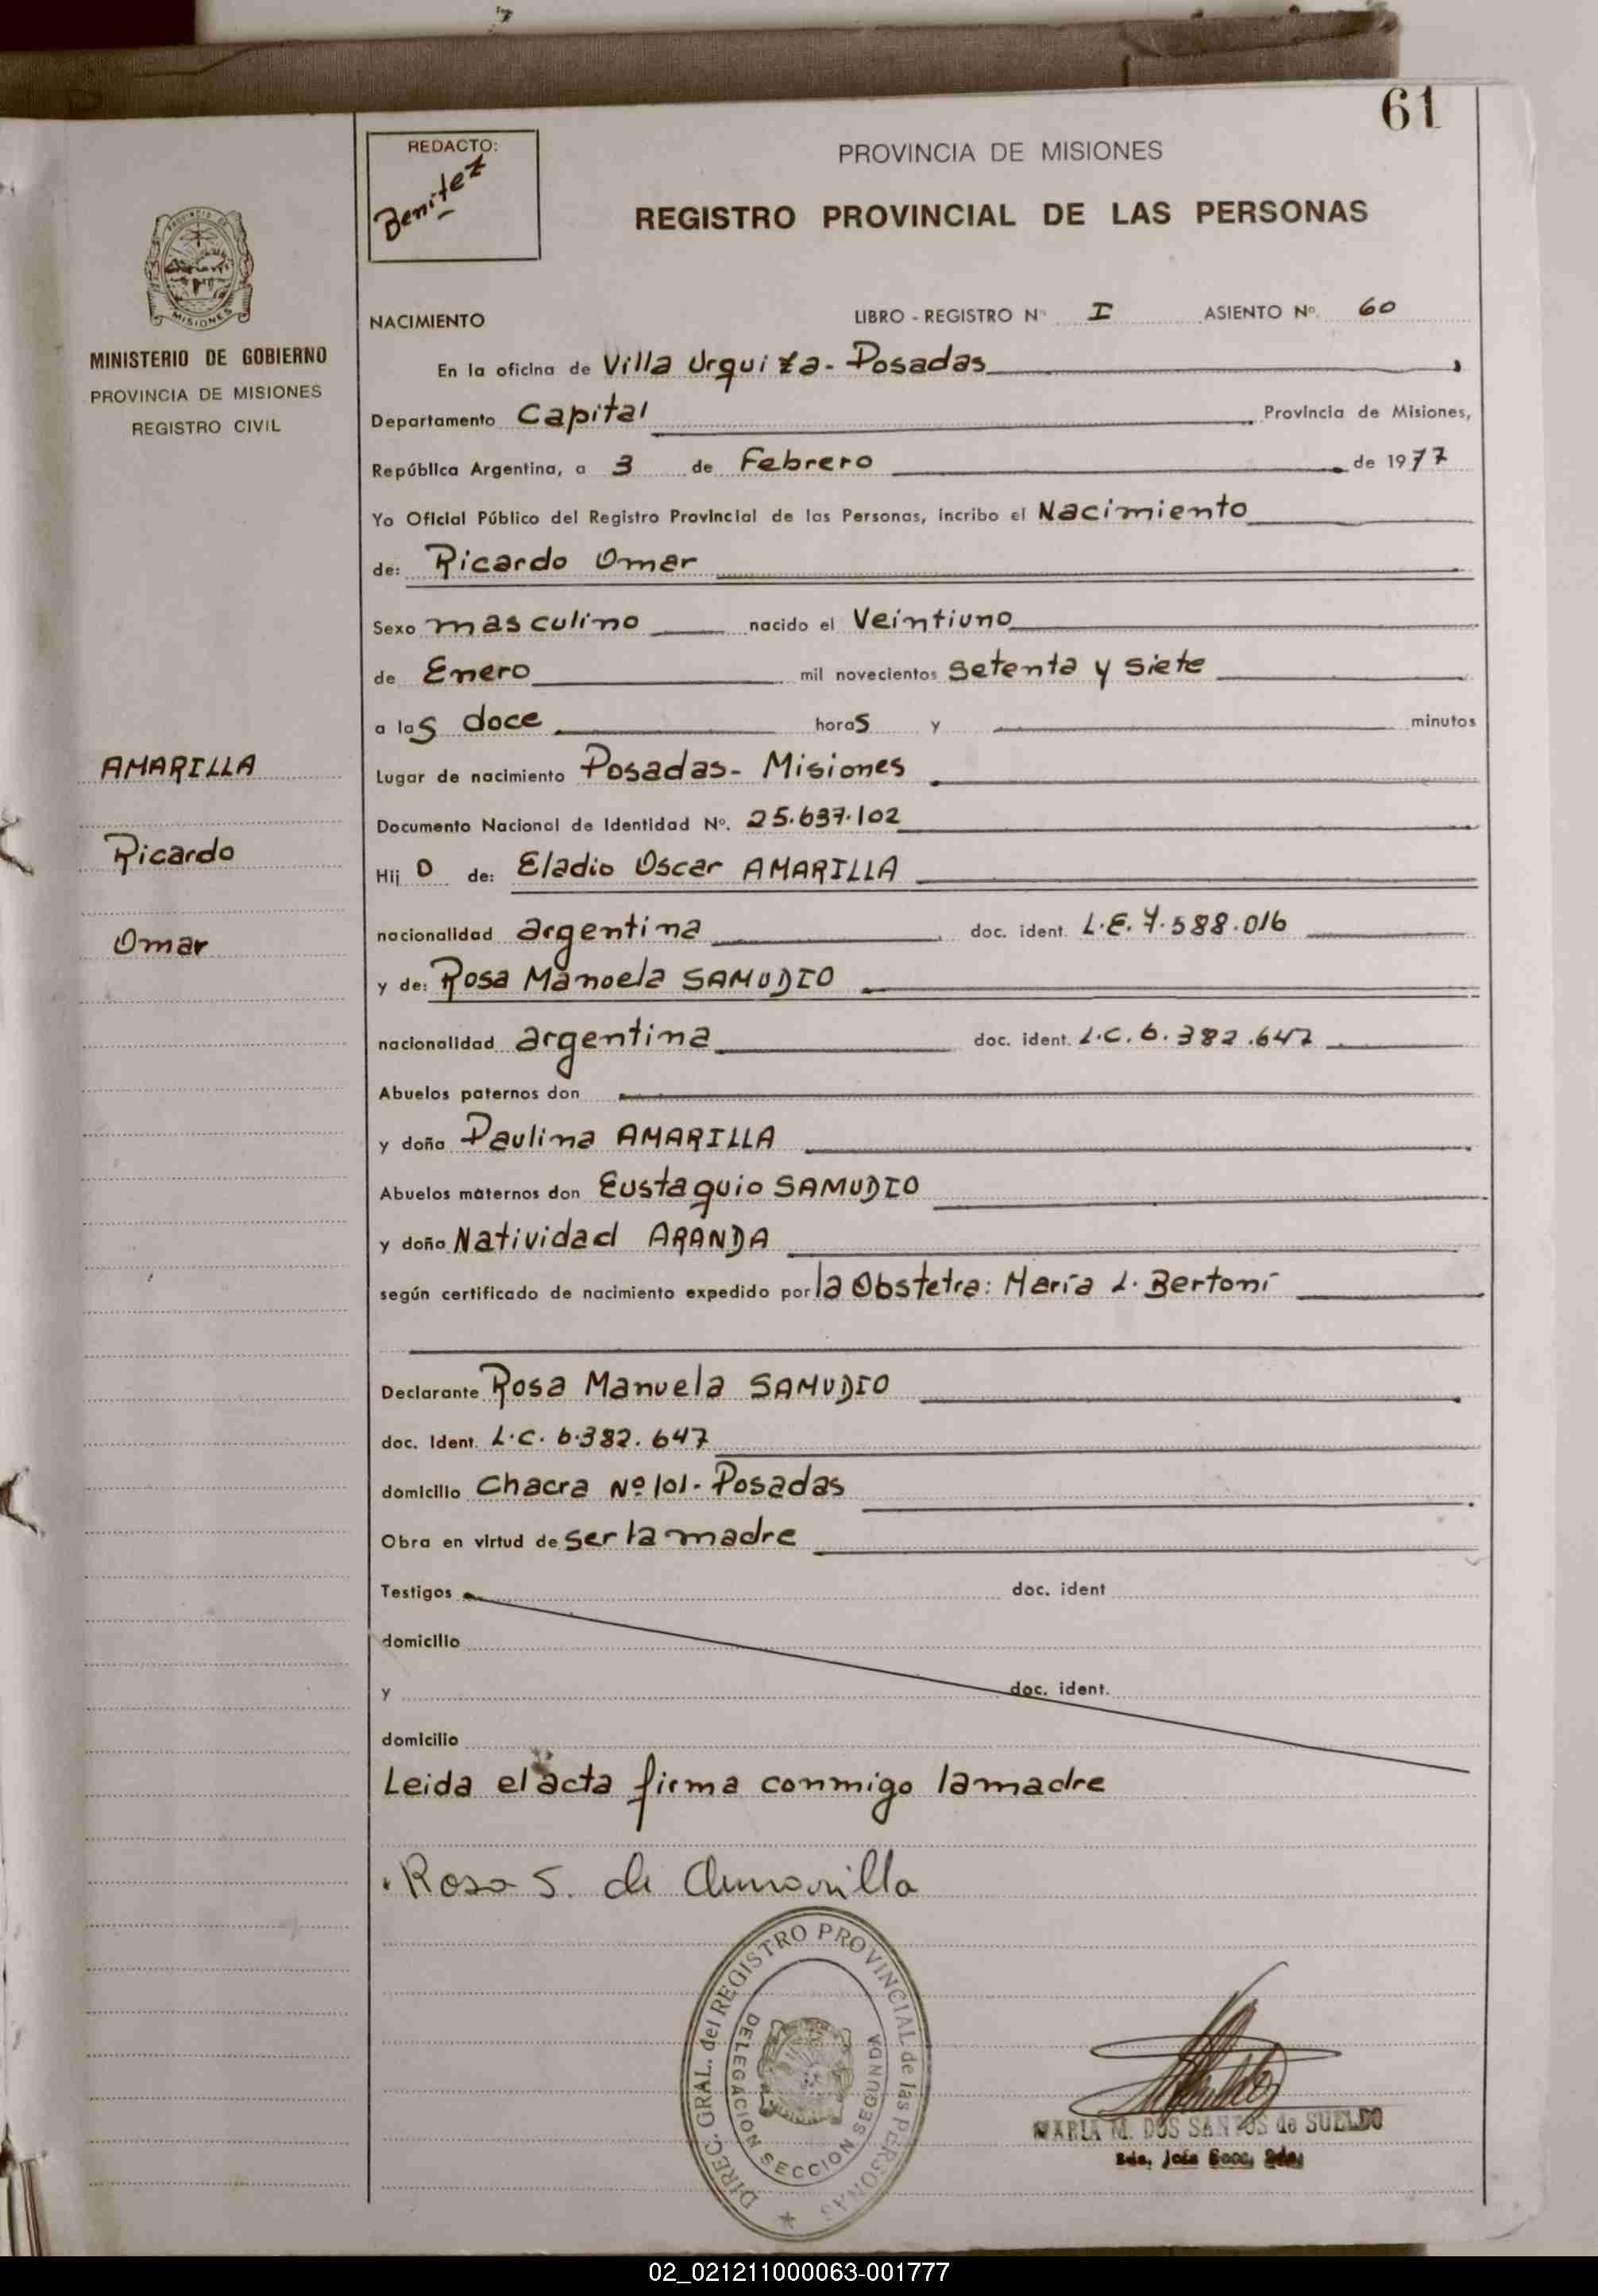 61
REDACTO:
Benitez
PROVINCIA DE MISIONES
REGISTRO PROVINCIAL DE LAS PERSONAS
MISIONES
MINISTERIO DE GOBIERNO
PROVINCIA DE MISIONES
REGISTRO CIVIL
NACIMIENTO LIBRO - REGISTRO Nº I ASIENTO Nº. 60
En la oficina de Villa Urquiza - Posadas,
Departamento Capital Provincia de Misiones,
República Argentina, a 3 de Febrero de 1977
Yo Oficial Público del Registro Provincial de las Personas, incribo el Nacimiento
de: Ricardo Omar
Sexo masculino nacido el Veintiuno
de Enero mil novecientos setenta y siete
a las doce horas y minutos
AMARILLA
Ricardo
Omar
Lugar de nacimiento Posadas - Misiones
Documento Nacional de Identidad Nº. 25.637.102
Hij o de: Eladio Oscar AMARILLA
nacionalidad argentina doc. ident. L.E. 7.588.016
y de: Rosa Manoela SAMUDIO
nacionalidad argentina doc. ident. L.C. 6.382.647
Abuelos paternos don
y doña Paulina AMARILLA
Abuelos maternos don Eustaquio SAMUDIO
y doña Natividad ARANDA
según certificado de nacimiento expedido por la Obstetra: María L. Bertoni
Declarante Rosa Manuela SAMUDIO
doc. Ident. L.C. 6.382.647
domicilio Chacra Nº 101 - Posadas
Obra en virtud de ser la madre
Testigos doc. ident
domicilio
y doc. ident.
domicilio
Leida el acta firma conmigo la madre
Rosa S. de Amarilla
DIREC. GRAL. del REGISTRO PROVINCIAL de las PERSONAS
DELEGACION SECCION SEGUNDA
MARIA M. DOS SANTOS de SUELDO
02_021211000063-001777